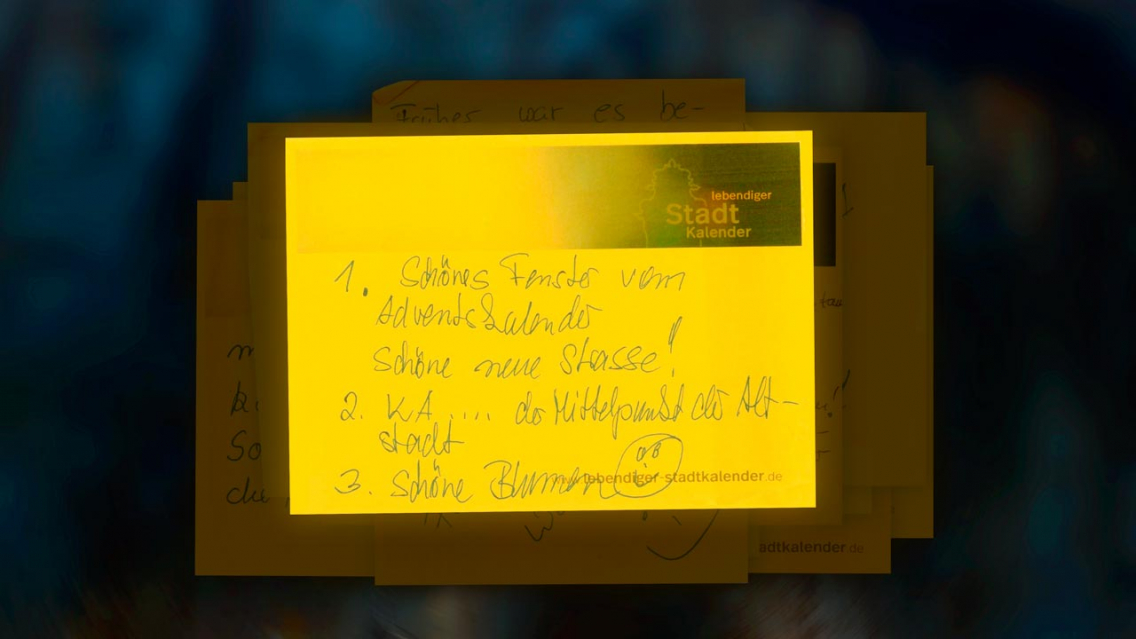 Früher war es be-
lebendiger
Stadt
Kalender
1. Schönes Fenster vom
Adventskalender
schöne neue Strasse!
2. KA .... der Mittelpunkt der Alt-
stadt
3. schöne Blumen
www.lebendiger-stadtkalender.de
m
So
die
adtkalender.de